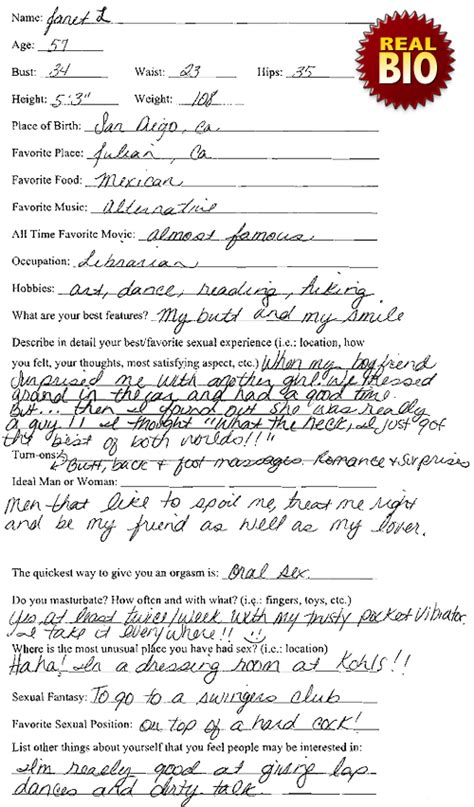 Name: Janet L
REAL
BIO
Age: 57
Bust: 34 Waist: 23 Hips: 35
Height: 5'3" Weight: 108
Place of Birth: San Diego, Ca.
Favorite Place: Julian, Ca
Favorite Food: Mexican
Favorite Music: Alternative
All Time Favorite Movie: almost famous
Occupation: Librarian
Hobbies: art, dance, reading, hiking
What are your best features? My butt and my smile
Describe in detail your best/favorite sexual experience (i.e.: location, how
you felt, your thoughts, most satisfying aspect, etc.) When my boyfriend
surprised me with another girl. We messed
around in the car and had a good time.
But... then I found out she was really
a guy!! I thought "What the heck, I just got
the best of both worlds!!"
Turn-ons: Butt, back & foot massages. Romance & Surprises
Ideal Man or Woman:
Men that like to spoil me, treat me right
and be my friend as well as my lover.
The quickest way to give you an orgasm is: Oral sex
Do you masturbate? How often and with what? (i.e.: fingers, toys, etc.)
Yes at least twice/week with my trusty pocket vibrator.
I take it everywhere!!
Where is the most unusual place you have had sex? (i.e.: location)
Haha! In a dressing room at Kohls!!
Sexual Fantasy: To go to a swingers club
Favorite Sexual Position: On top of a hard cock!
List other things about yourself that you feel people may be interested in:
I'm really good at giving lap
dances and dirty talk.